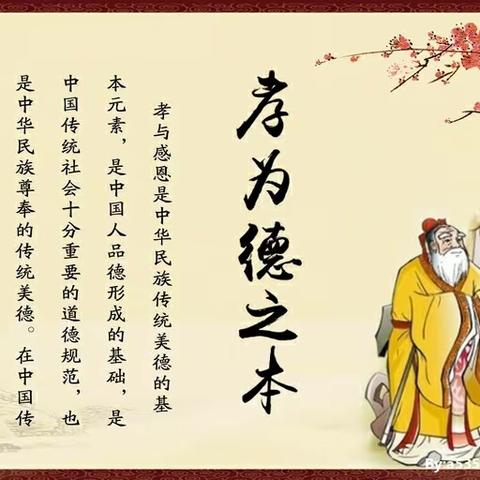 孝为德之本
孝与感恩是中华民族传统美德的基
本元素，是中国人品德形成的基础，是
中国传统社会十分重要的道德规范，也
是中华民族尊奉的传统美德。在中国传